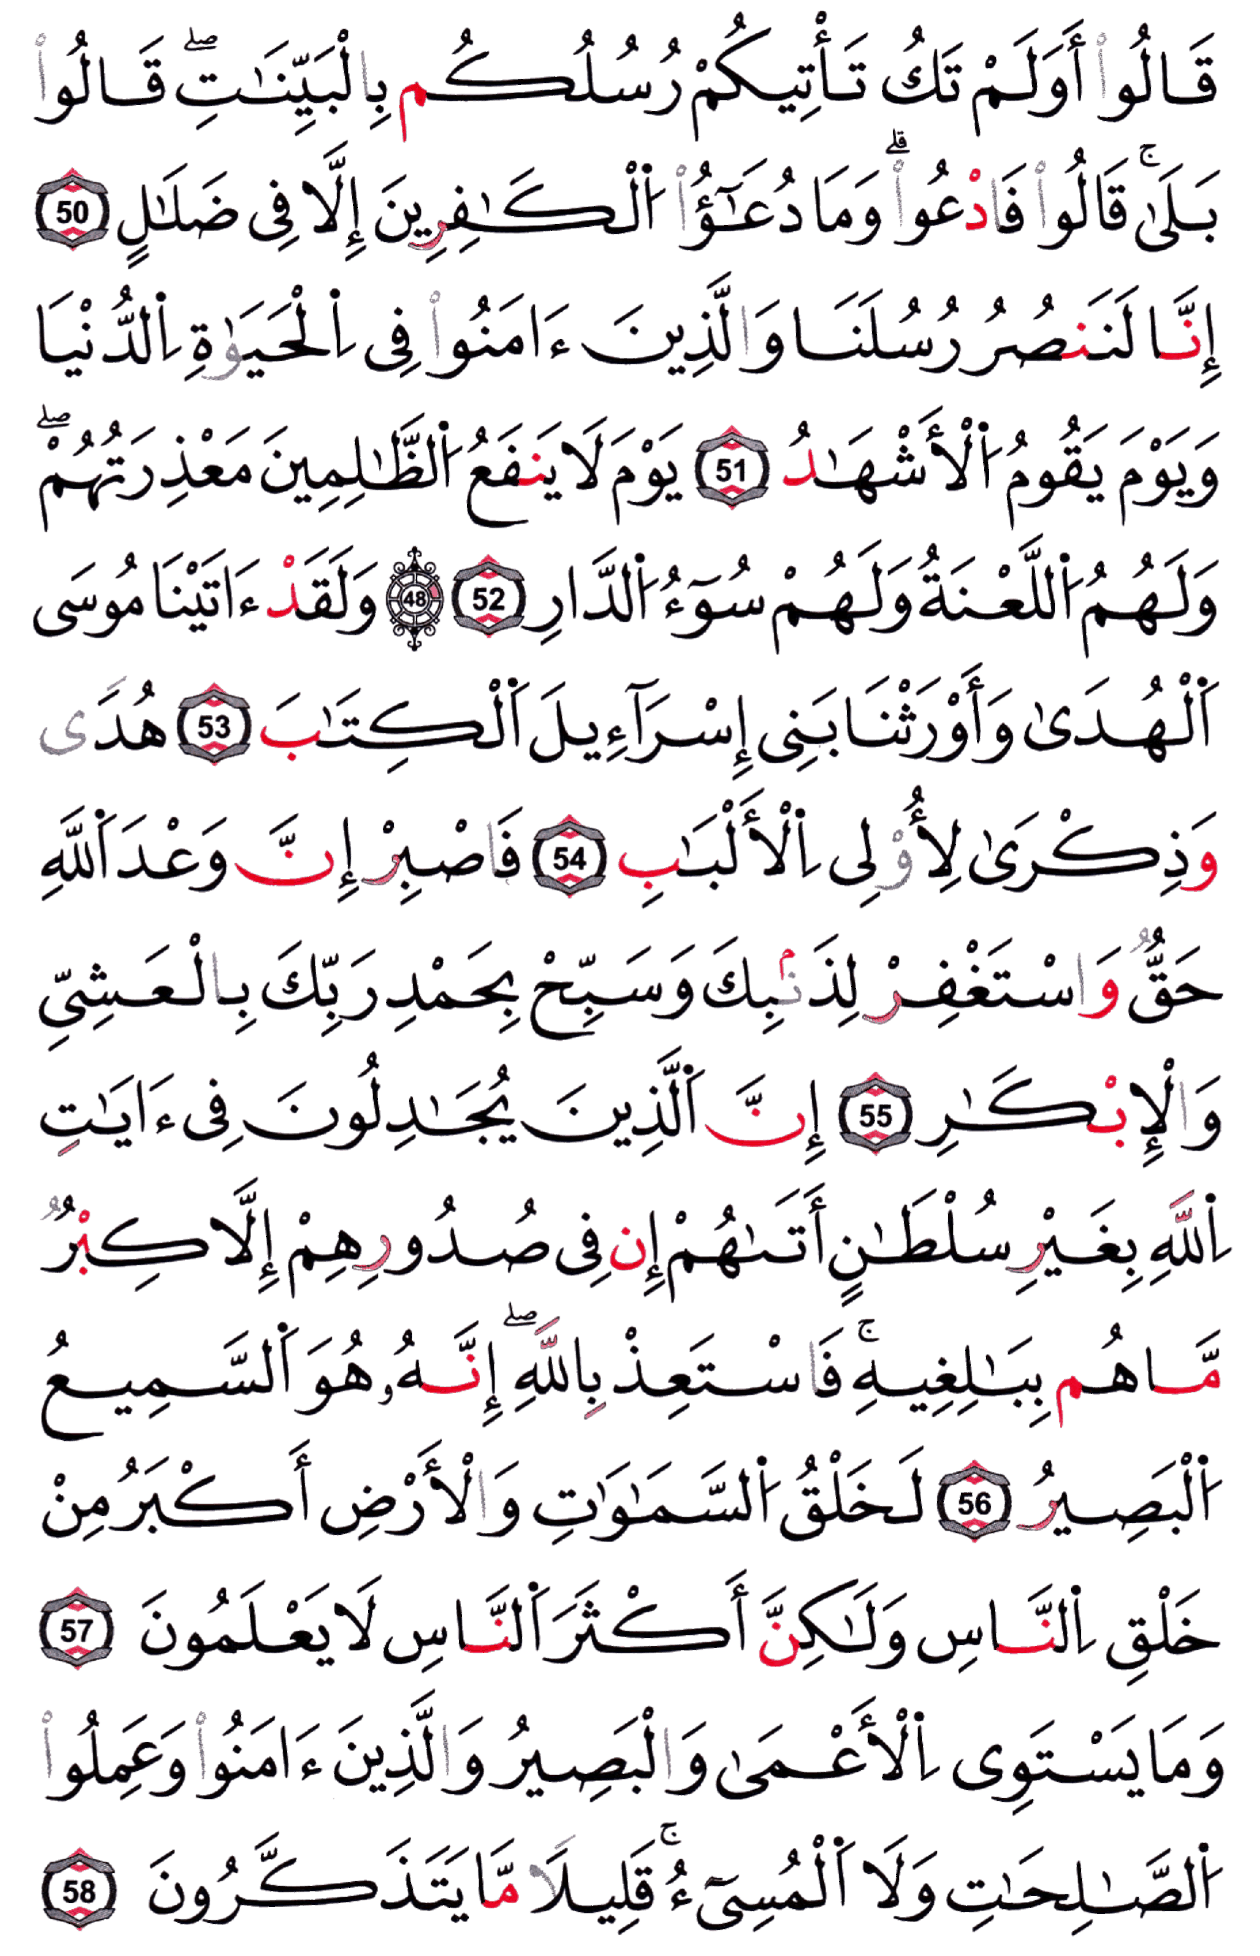 قَالُوا۟ أَوَلَمْ تَكُ تَأْتِيكُمْ رُسُلُكُم بِالْبَيِّنَٰتِ ۖ قَالُوا۟
بَلَىٰ ۚ قَالُوا۟ فَادْعُوا۟ ۗ وَمَا دُعَٰٓؤُا۟ اَ۬لْكَٰفِرِينَ إِلَّا فِى ضَلَٰلٍ 50
إِنَّا لَنَنصُرُ رُسُلَنَا وَالَّذِينَ ءَامَنُوا۟ فِى اِ۬لْحَيَوٰةِ اِ۬لدُّنْيَا
وَيَوْمَ يَقُومُ اُ۬لْأَشْهَٰدُ 51 يَوْمَ لَا يَنفَعُ اُ۬لظَّٰلِمِينَ مَعْذِرَتُهُمْ ۖ
وَلَهُمُ اُ۬للَّعْنَةُ وَلَهُمْ سُوٓءُ اُ۬لدَّارِ 52 48 وَلَقَدْ ءَاتَيْنَا مُوسَى
اَ۬لْهُدَىٰ وَأَوْرَثْنَا بَنِى إِسْرَآءِيلَ اَ۬لْكِتَٰبَ 53 هُدًى
وَذِكْرَىٰ لِأُو۟لِى اِ۬لْأَلْبَٰبِ 54 فَاصْبِرْ إِنَّ وَعْدَ اَ۬للَّهِ
حَقٌّ وَاسْتَغْفِرْ لِذَنۢبِكَ وَسَبِّحْ بِحَمْدِ رَبِّكَ بِالْعَشِىِّ
وَالْإِبْكَٰرِ 55 إِنَّ اَ۬لَّذِينَ يُجَٰدِلُونَ فِى ءَايَٰتِ
اِ۬للَّهِ بِغَيْرِ سُلْطَٰنٍ أَتَىٰهُمْ إِن فِى صُدُورِهِمْ إِلَّا كِبْرٌ
مَّا هُم بِبَٰلِغِيهِ ۚ فَاسْتَعِذْ بِاللَّهِ ۖ إِنَّهُۥ هُوَ اَ۬لسَّمِيعُ
اُ۬لْبَصِيرُ 56 لَخَلْقُ اُ۬لسَّمَٰوَٰتِ وَالْأَرْضِ أَكْبَرُ مِنْ
خَلْقِ اِ۬لنَّاسِ وَلَٰكِنَّ أَكْثَرَ اَ۬لنَّاسِ لَا يَعْلَمُونَ 57
وَمَا يَسْتَوِى اِ۬لْأَعْمَىٰ وَالْبَصِيرُ وَالَّذِينَ ءَامَنُوا۟ وَعَمِلُوا۟
اُ۬لصَّٰلِحَٰتِ وَلَا اَ۬لْمُسِىٓءُ ۚ قَلِيلًا مَّا يَتَذَكَّرُونَ 58